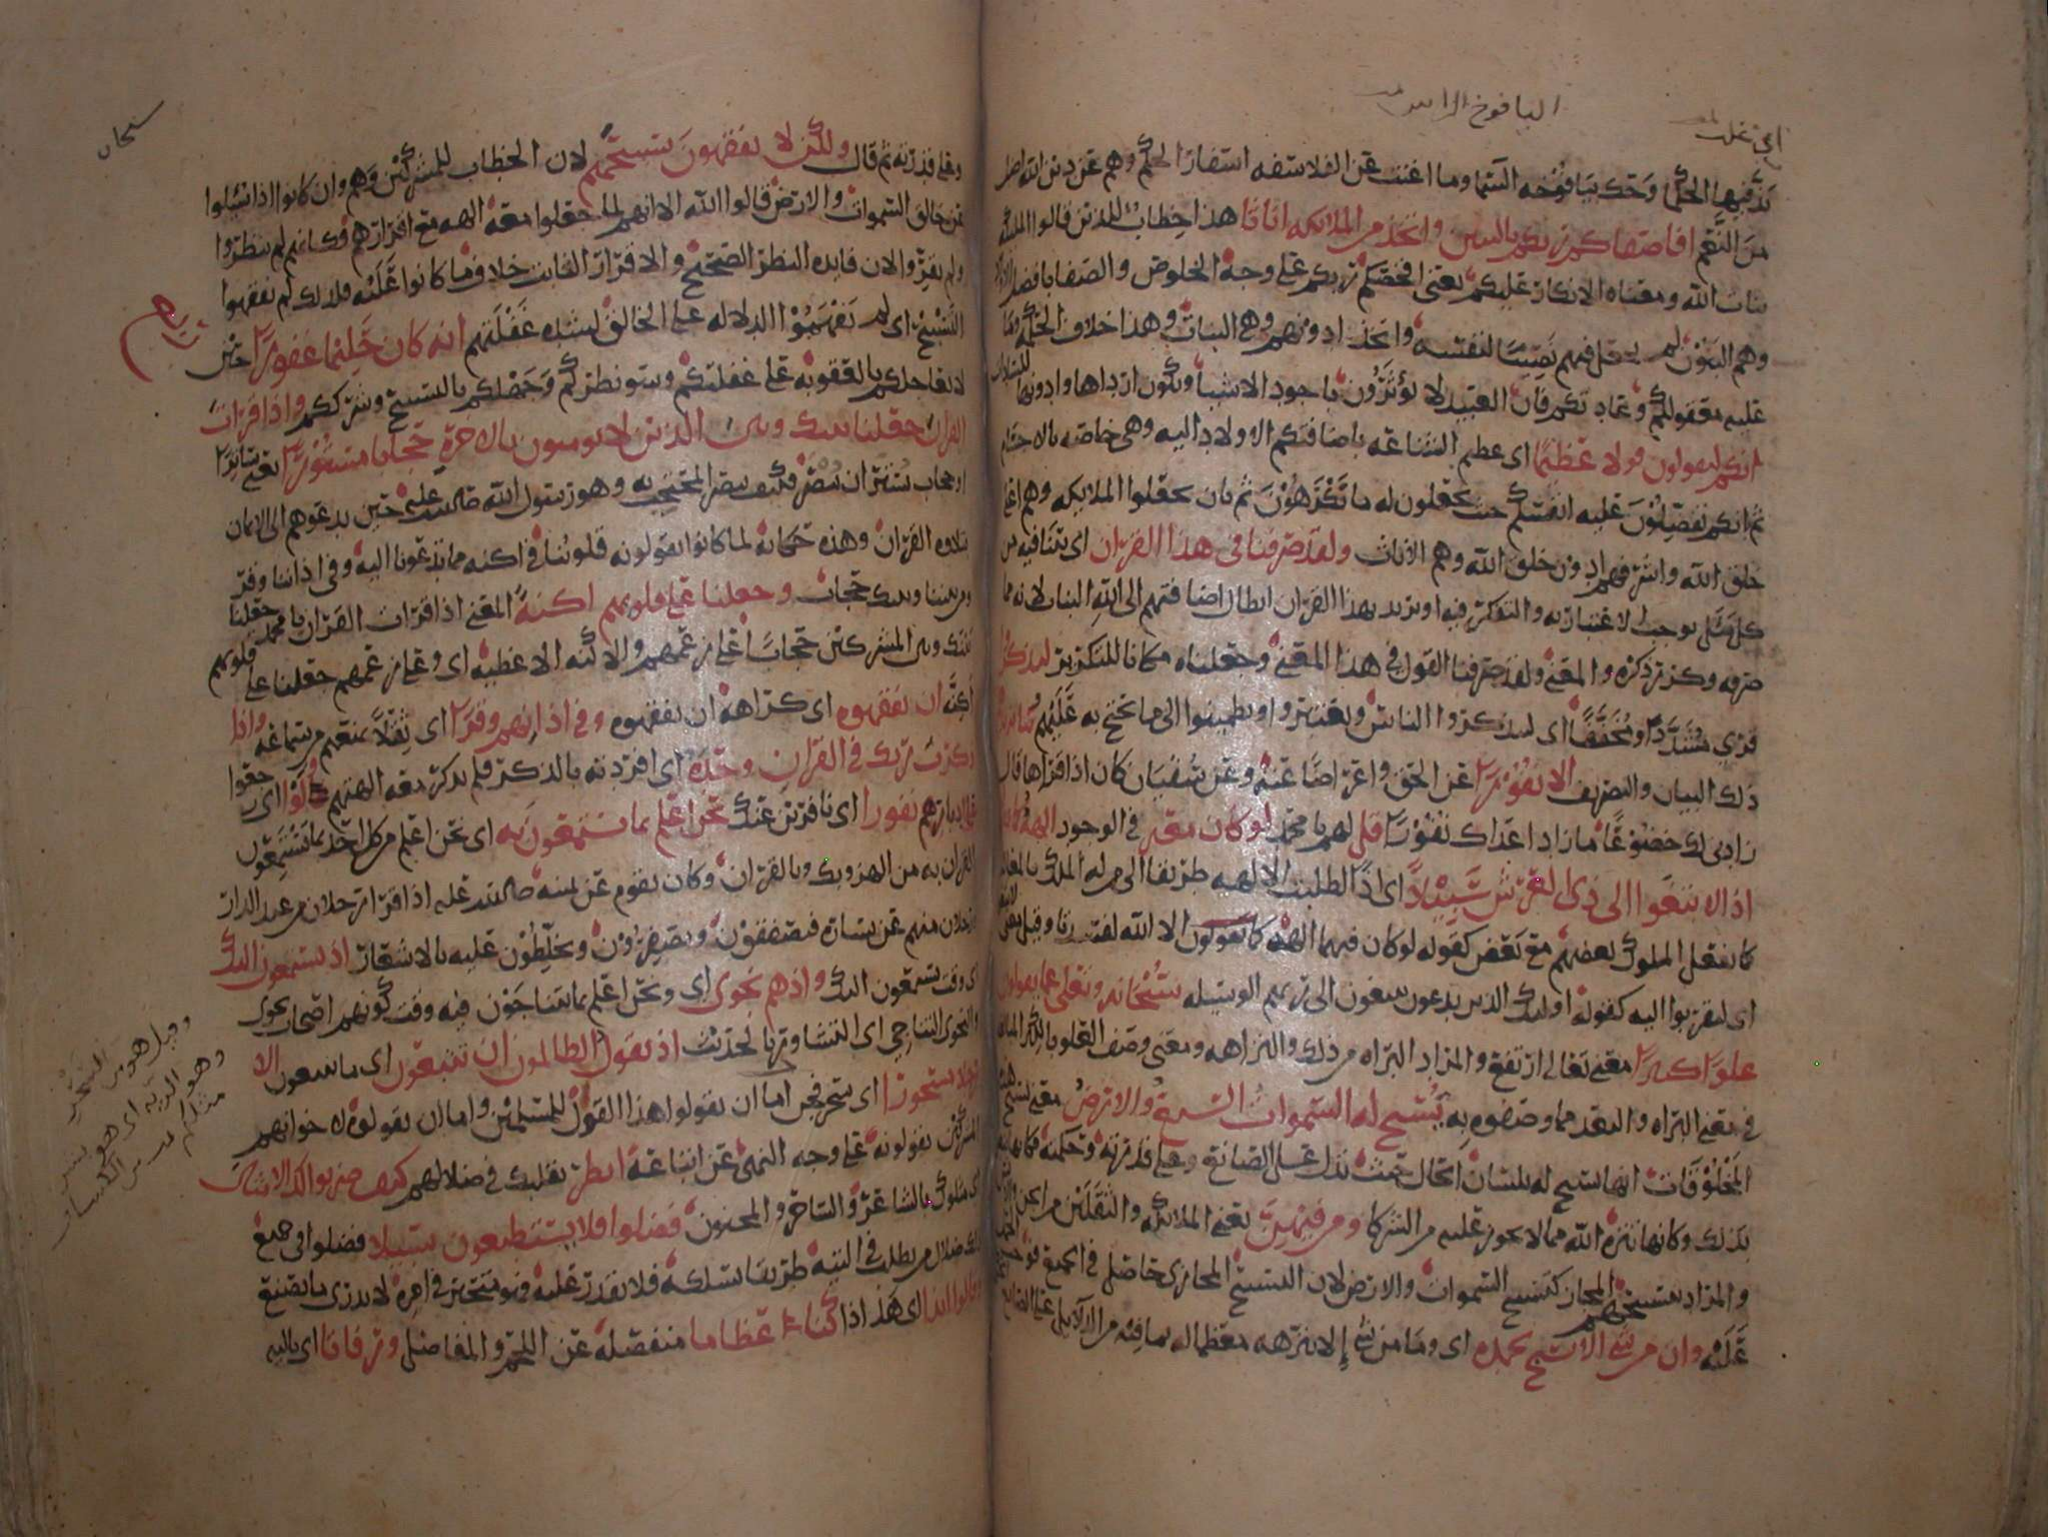 اليافوخ الراس
اي غلب
بذ فيها الحكما وحك بيافوخه السما وما اغنت عن الفلاسفه اسفار الحكم وهم عن دين الله اضل
من النعم افاصفاكم ربكم بالبنين واتخذ من الملائكه اناثا هذا خطاب للذين قالوا الملئكه
بنات الله ومعناه الانكار عليكم يعني افخصكم ربكم على وجه الخلوص والصفا بافضل الاولاد
وهم البنون لم يجعل فيهم نصيبا لنفسه واتخذ ادونهم وهي البنات وهذا خلاف الحكمه وما
عليه معقولكم وعادتكم فان العبيد لا يؤثرون باجود الاشيا ويكون ارداها وادونها للسادات
انكم لتقولون قولا عظيما اي عظيم الشناعه باضافتكم الاولاد اليه وهي خاصه بالاجسام
ثم انكم تفضلون عليه انفسكم حيث تجعلون له ما تكرهون ثم بان تجعلوا الملايكه وهم اعلى
خلق الله واشرفهم ادون خلق الله وهم الاناث ولقد صرفنا في هذا القران اي بينا فيه من
كل مثل يوجب الاعتبار به والتفكر فيه او يريد بهذا القران ابطال اضافتهم الى الله البنات لانه مما
صرفه وكرر ذكره والمعنى ولقد صرفنا القول في هذا المعنى وجعلناه مكانا للتكرير ليذكروا
قري مشددا ومخففا اي ليذكروا الناس ويعتبروا ويطمينوا الى ما يحتج به عليهم وما يزيدهم
ذلك البيان والتصريف الا نفورا عن الحق واعراضا عنه وعن سفيان كان اذا قراها قال
زادني لك خضوعا ما زاد اعداك نفورا قل لهم يا محمد لو كان معه في الوجود الهه كما
اذا لابتغوا الى ذي العرش سبيلا اي اذا لطلبت الالهه طريقا الى من له الملك بالمغالبه
كما يفعل الملوك بعضهم مع بعض كقوله لو كان فيهما الهه الا الله لفسدتا وقيل معنى
اي لتقربوا اليه كقوله اوليك الذين يدعون يبتغون الى ربهم الوسيله سبحانه وتعلى عما يقولون
علوا كبيرا معنى تعالى ارتفع والمراد البراه من ذلك والنزاهه ومعنى وصف العلو بالكبر المبالغه
في معنى البراه والبعد مما وصفوه به يسبح له السموات السبع والارض معنى تسبيح هذه
المخلوقات انها تسبح له بلسان الحال حيث تدل على الصانع وعلى قدرته وحكمته فكانها تنطق
بذلك وكانها تنزه الله مما لا يجوز عليه من الشركا ومن فيهن يعني الملائكه والثقلين من الجن والانس
والمراد بتسبيحهم المجاز كتسبيح السموات والارض لان التسبيح المجازي حاصل في الجميع
عليه وان من شي الا يسبح بحمده اي وما من شي إلا ينزهه معظما له بما فيه من الادله على الصانع
سبحان
وعلى قدرته ثم قال ولكن لا تفقهون تسبيحهم لان الخطاب للمشركين وهم وان كانوا اذا سئلوا
عن خالق السموات والارض قالوا الله الا انهم لما جعلوا معه الهه مع اقرارهم فكانهم لم ينظروا
ولم يقروا لان فايده النظر الصحيح والاقرار الثابت خلاف ما كانوا عليه فلذلك لم يفقهوا
التسبيح اي لم يفهموا الدلاله على الخالق لشده غفلتهم انه كان حليما غفورا حين
لا يعاجلكم بالعقوبه على غفلتكم وسو نظركم وجهلكم بالتسبيح وشرككم واذا قرات
القران جعلنا بينك وبين الذين لا يومنون بالاخره حجابا مستورا يعني ساترا
او حجاب يستر ان يبصر فكيف يبصر المحتجب به وهو رسول الله صلى الله عليه حين يدعوهم الى الايمان
بتلاوه القران وهذه حكايه لما كانوا يقولونه قلوبنا في اكنه مما تدعونا اليه وفي اذاننا وقر
ومن بيننا وبينك حجاب وجعلنا على قلوبهم اكنة المعنى اذا قرات القران يا محمد جعلنا
بينك وبين المشركين حجابا على زعمهم والاكنه الاغطيه اي وعلى زعمهم جعلنا على قلوبهم
اكنه ان يفقهوه اي كراهه ان يفقهوه وفي اذانهم وقرا اي ثقلا يمنعهم من سماعه واذا
ذكرت ربك في القران وحده اي افردته بالذكر ولم يذكر معه الهتهم ولوا اي رجعوا
على ادبارهم نفورا اي نافرين عنك نحن اعلم بما يستمعون به اي نحن اعلم من كل احد بما يستمعون
القران به من الهزو بك وبالقران وكان يقوم عن يمينه صلى الله عليه اذا قرا رجلان من عبد الدار
ورجلان منهم عن يساره فيصفقون ويصفرون ويخلطون عليه بالاشعار اذ يستمعون اليك
اي وقت يستمعون اليك واذ هم نجوى اي ونحن اعلم بما يتناجون فيه وقت كونهم اصحاب نجوى
والنجوى التناجي اي التشاور بالحديث اذ يقول الظالمون ان تتبعون اي ما تتبعون الا
رجلا مسحورا اي سحر فجن اما ان يقولوا هذا القول للمسلمين واما ان يقولوه لاخوانهم
المشركين يقولونه على وجه النهي عن اتباعه انظر بقلبك في ضلالهم كيف ضربوا لك الامثال
اي مثلوك بالشاعر والساحر والمجنون فضلوا فلا يستطيعون سبيلا فضلوا في جميع
ذلك ضلال من يطلب في التيه طريقا يسلكه فلا يقدر عليه وهو متحير في امره لا يدري ما يصنع
وقالوا ائذا اي هذا اذا كنا عظاما منفصله عن اللحم والمفاصل ورفاتا اي باليه
وقيل هو من السحر
وهو الريه اي هو بشر
مثلكم من الكشاف